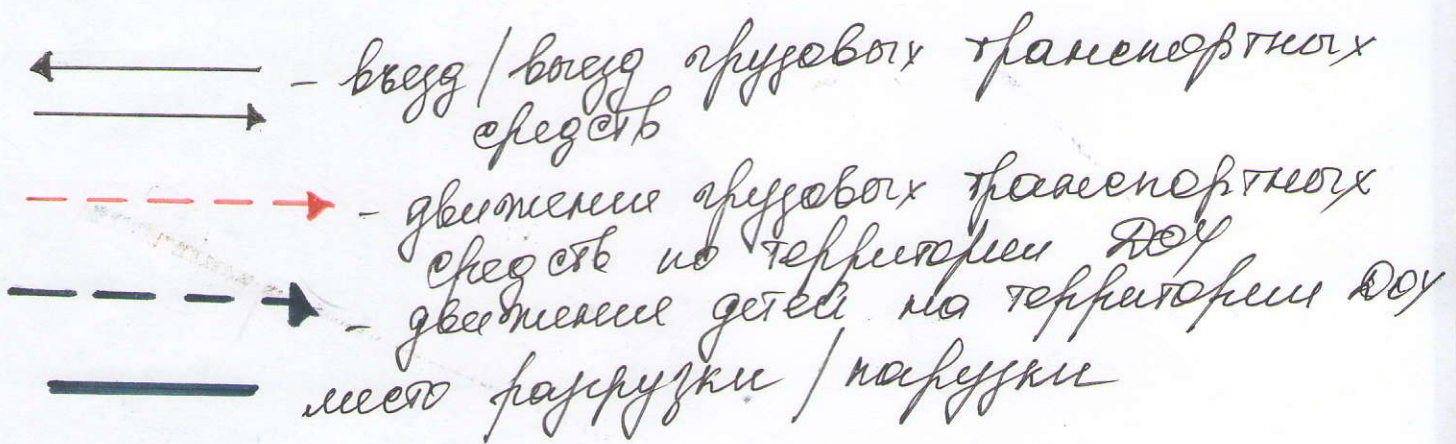 - въезд/выезд грузовых транспортных
средств
- движение грузовых транспортных
средств по территории ДОУ
- движение детей на территории ДОУ
место разгрузки / нагрузки